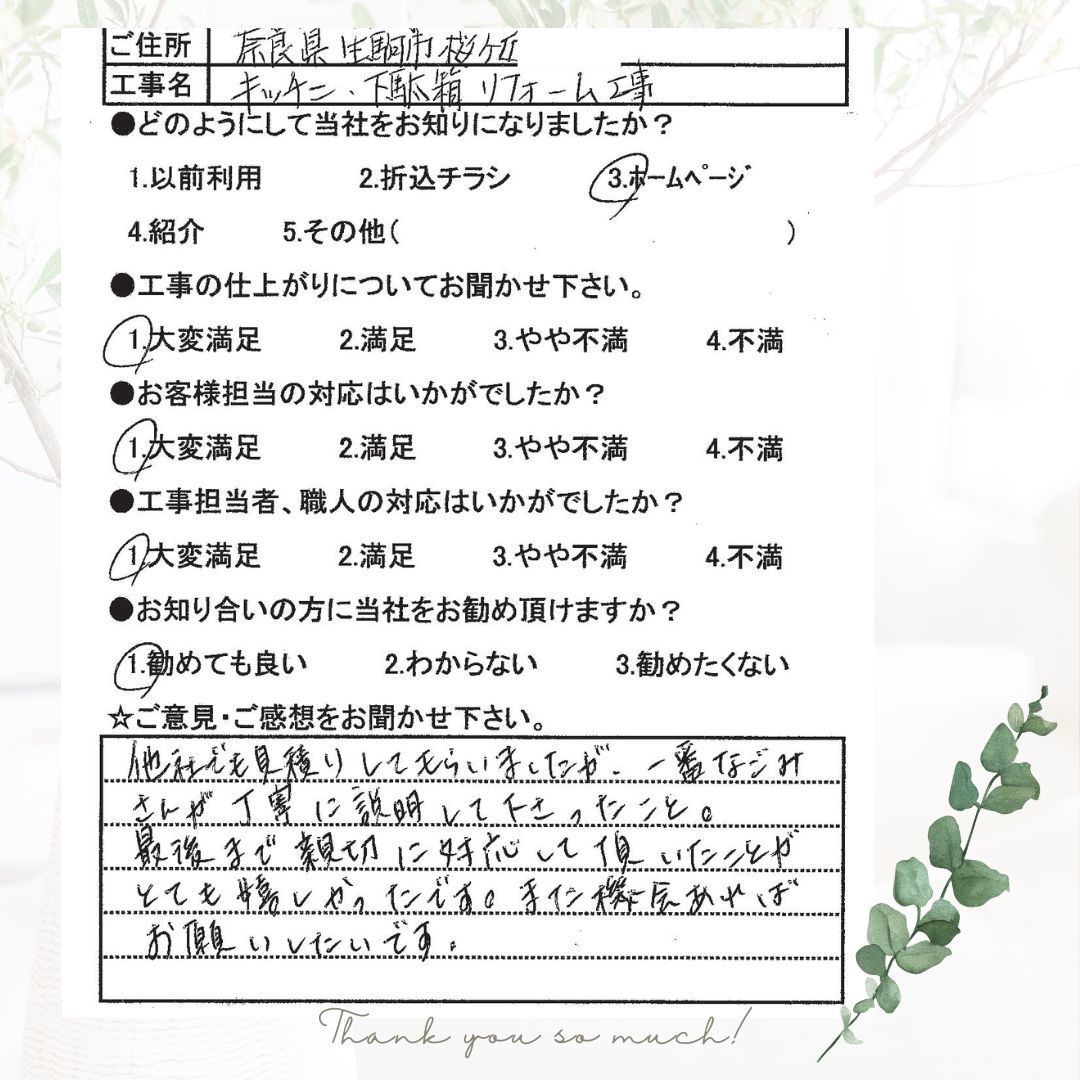 ご住所 奈良県生駒市桜ケ丘
工事名 キッチン・下駄箱リフォーム工事
●どのようにして当社をお知りになりましたか？
1.以前利用 2.折込チラシ 3.ホームページ
4.紹介 5.その他( )
●工事の仕上がりについてお聞かせ下さい。
1.大変満足 2.満足 3.やや不満 4.不満
●お客様担当の対応はいかがでしたか？
1.大変満足 2.満足 3.やや不満 4.不満
●工事担当者、職人の対応はいかがでしたか？
1.大変満足 2.満足 3.やや不満 4.不満
●お知り合いの方に当社をお勧め頂けますか？
1.勧めても良い 2.わからない 3.勧めたくない
☆ご意見・ご感想をお聞かせ下さい。
他社でも見積りしてもらいましたが、一番なごみ
さんが丁寧に説明して下さったこと。
最後まで親切に対応して頂いたことが
とても嬉しかったです。また機会あれば
お願いしたいです。
Thank you so much!